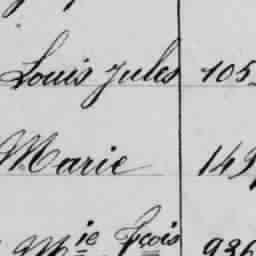 Louis Jules 105
Marie 149
Mie Fçois 936